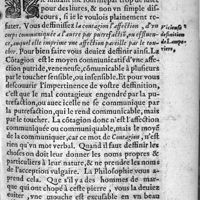 pour des liures, & non vn simple dis-
cours, si ie le voulois plainement re-
futer. Vous definissez la contagion l'affection, d'vn
corps communiquée a l'autre par putrefactiō, ou efflueu-
ce, auquel elle imprime vne affection pareille par le tou-
cher. Pour bien faire vous deuiez definir ainsi. La
Cōtagion est le moyen communicatif d'vne affe-
ction putride, veneneuse, cōmunicable à plusieurs
par le toucher sensible, ou insensible. Et pour vous
descouurir l'impertinence de vostre deffinition,
c'est que le mal contagieux engendré par la pu-
trefactiō, ou autre icelle ne se communique par
la putrefaction, qui le rend communicable, mais
par le toucher. La contagion donc n'est l'affectiō
communiquée ou communiquable, mais le moyē
de la communiquer, car ce mot de Contagion, n'est
rien qu'vn mot verbal. Quand il faut deffinir les
choses on doit leur donner les noms propres &
particuliers à leur nature, & ne prendre les noms
de l'acception vulgaire. La Philosophie vous a-
prend cela. Que s'il y a des hommes de mar-
que qui ont chopé à ceste pierre, vous la deuiez
euiter, vne mouche est excusable en vn beau
Vicieuse
definition